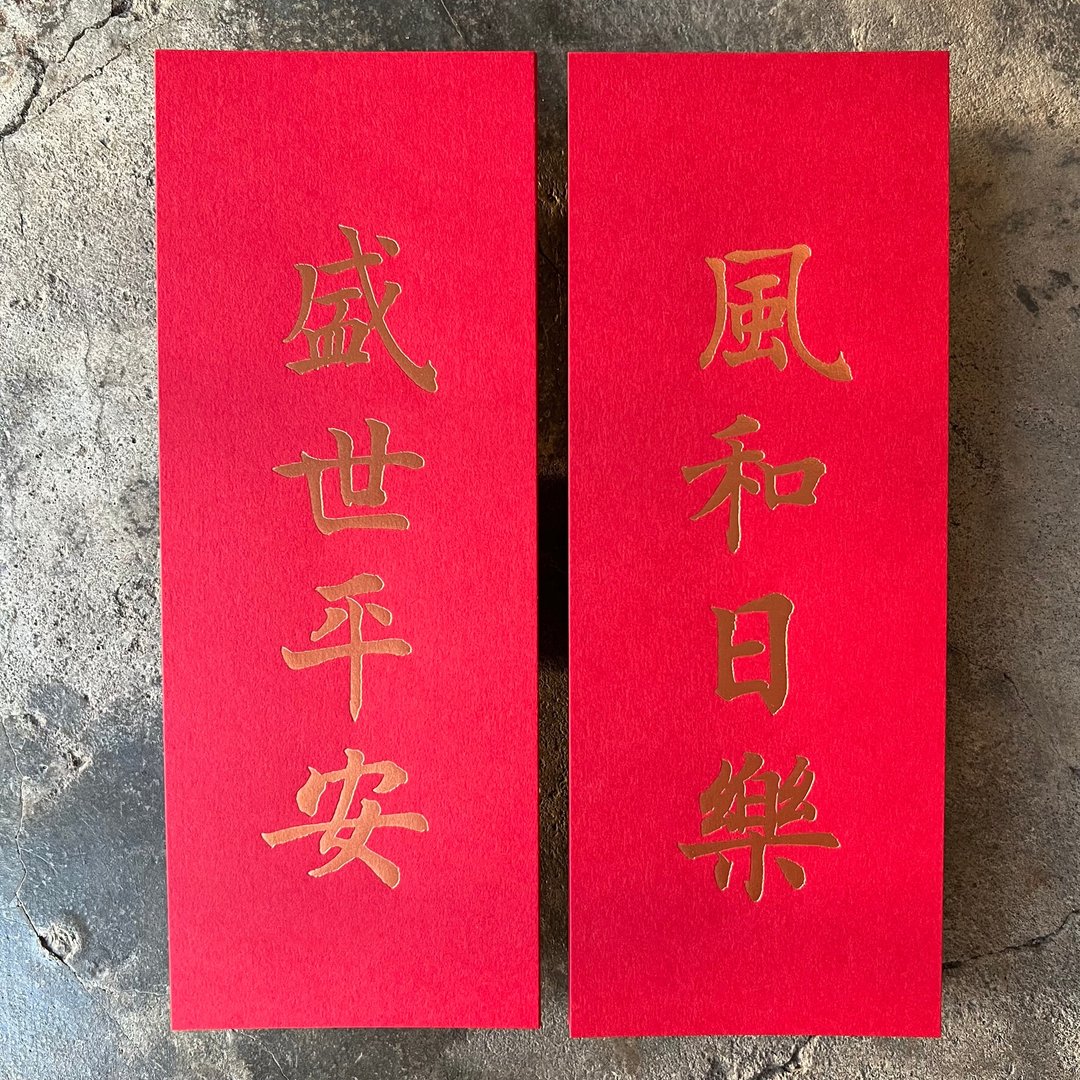 風和日樂
盛世平安